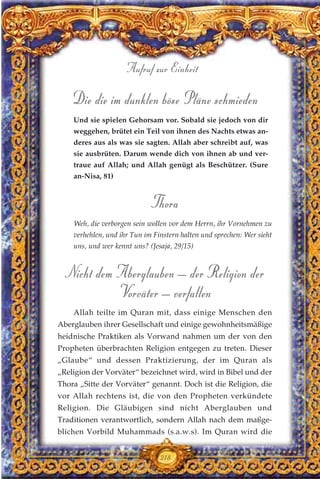 Aufruf zur Einheit
Die die im dunklen böse Pläne schmieden
Und sie spielen Gehorsam vor. Sobald sie jedoch von dir
weggehen, brütet ein Teil von ihnen des Nachts etwas an-
deres aus als was sie sagten. Allah aber schreibt auf, was
sie ausbrüten. Darum wende dich von ihnen ab und ver-
traue auf Allah; und Allah genügt als Beschützer. (Sure
an-Nisa, 81)
Thora
Weh, die verborgen sein wollen vor dem Herrn, ihr Vornehmen zu
verhehlen, und ihr Tun im Finstern halten und sprechen: Wer sieht
uns, und wer kennt uns? (Jesaja, 29/15)
Nicht dem Aberglauben – der Religion der
Vorväter – verfallen
Allah teilte im Quran mit, dass einige Menschen den
Aberglauben ihrer Gesellschaft und einige gewohnheitsmäßige
heidnische Praktiken als Vorwand nahmen um der von den
Propheten überbrachten Religion entgegen zu treten. Dieser
„Glaube“ und dessen Praktizierung, der im Quran als
„Religion der Vorväter“ bezeichnet wird, wird in Bibel und der
Thora „Sitte der Vorväter“ genannt. Doch ist die Religion, die
vor Allah rechtens ist, die von den Propheten verkündete
Religion. Die Gläubigen sind nicht Aberglauben und
Traditionen verantwortlich, sondern Allah nach dem maßge-
blichen Vorbild Muhammads (s.a.w.s). Im Quran wird die
218